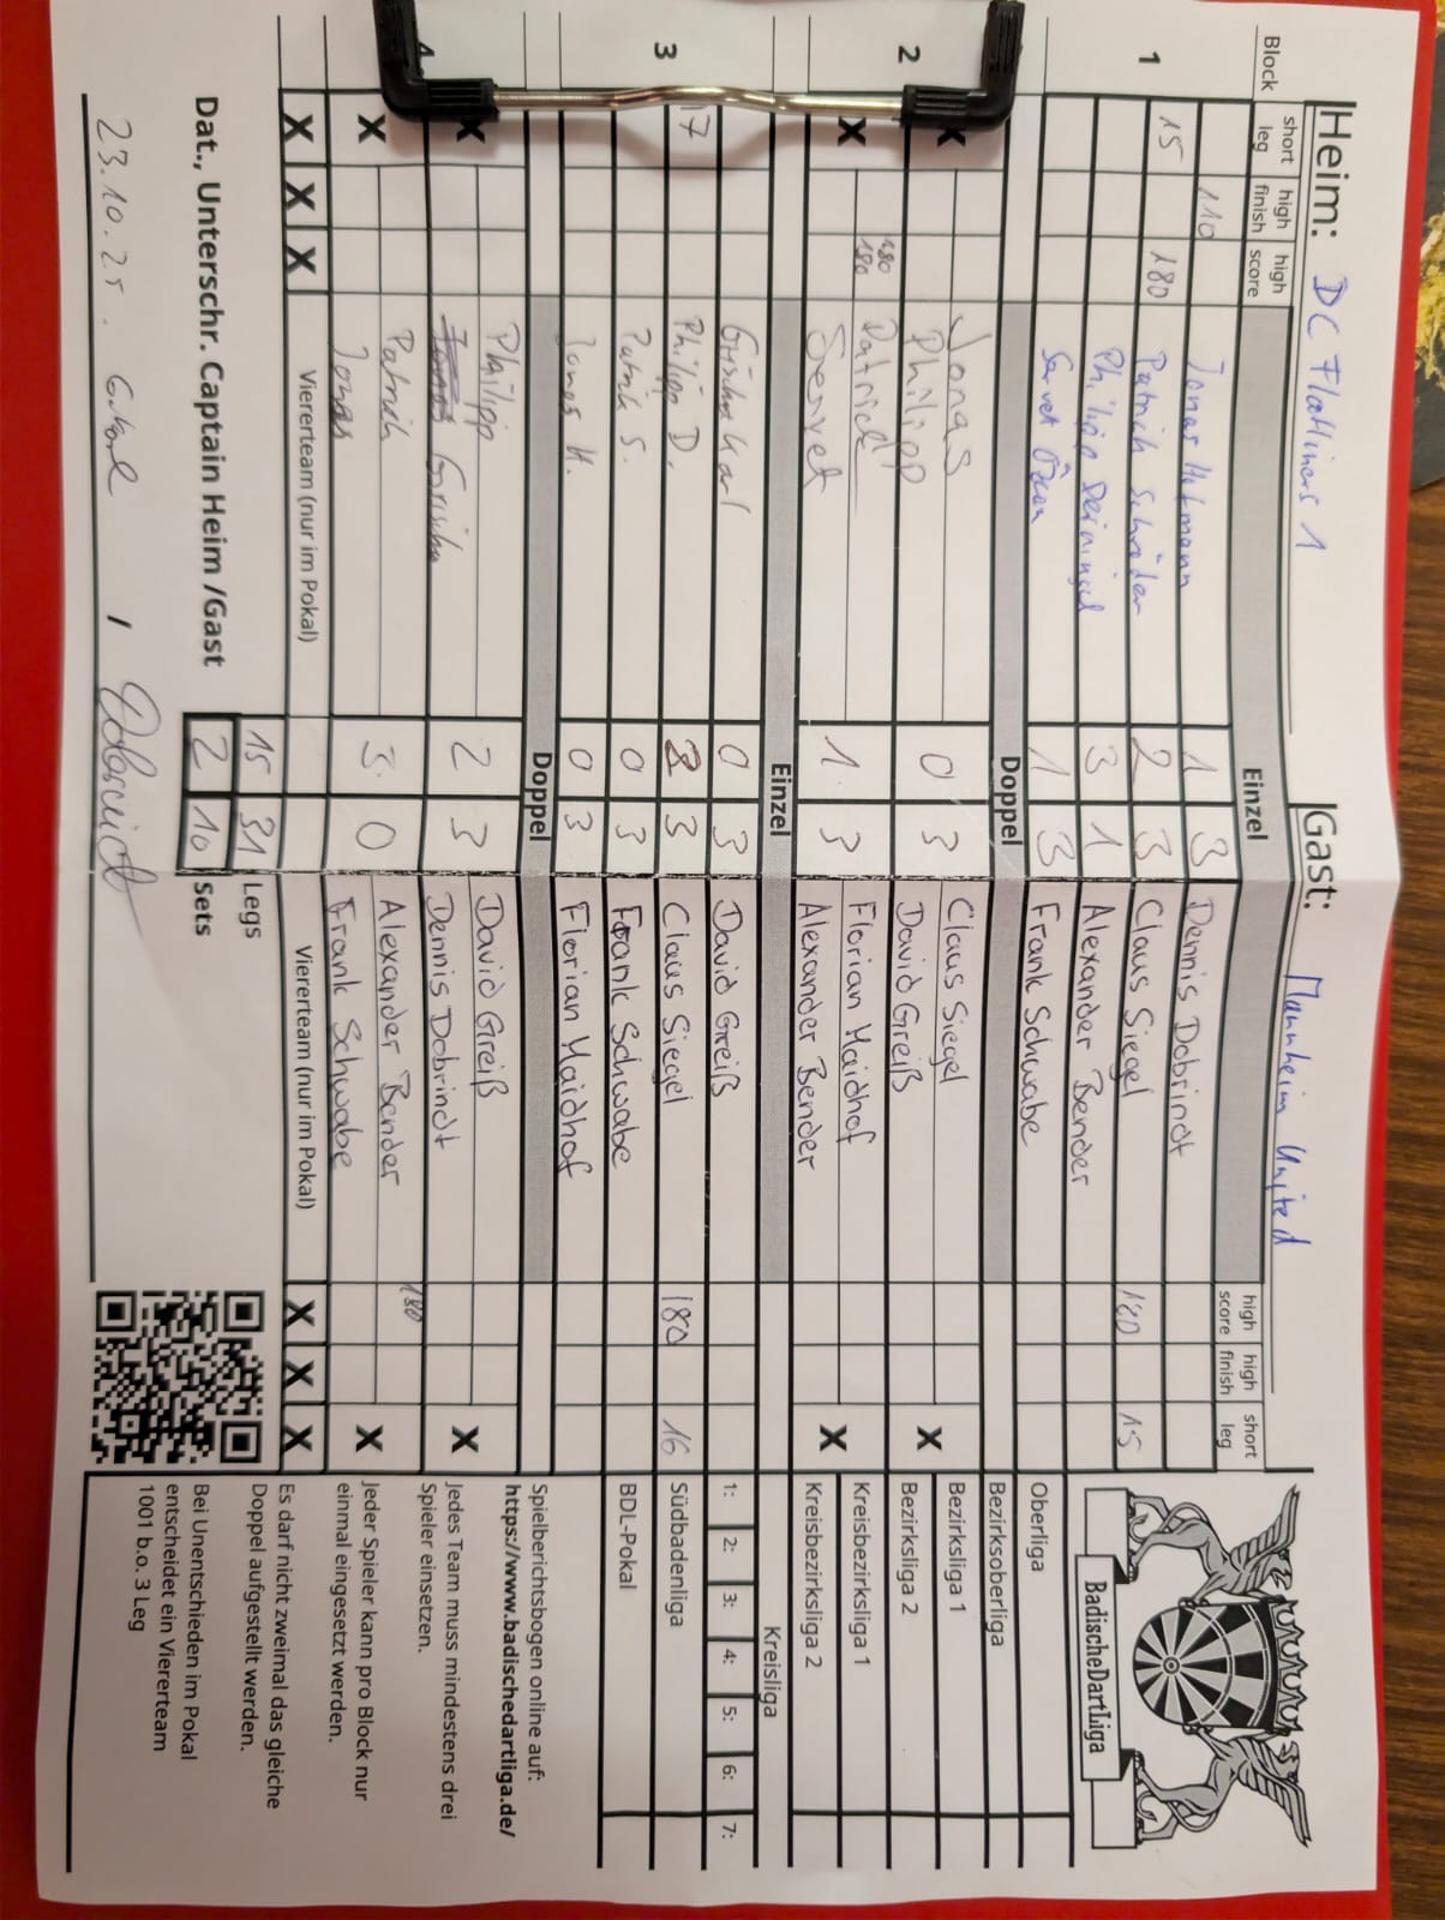 Heim: DC Flatliners 1 Gast: Mannheim United
Block short leg high finish high score Einzel high score high finish short leg
1
110 Jonas Hofmann 1 3 Dennis Dobrindt
15 180 Patrick Schröder 2 3 Claus Siegel 180 15
Philipp 3 1 Alexander Bender
Servet Özcan 1 3 Frank Schwabe
Doppel
2
X Jonas 0 3 Claus Siegel X
Philipp David Greiß
X 180 180 Patrick 1 3 Florian Maidhof X
Servet Alexander Bender
Einzel
3
0 3 David Greiß
17 Philipp D. 2 3 Claus Siegel 180 16
Patrick S. 0 3 Frank Schwabe
Jonas H. 0 3 Florian Maidhof
Doppel
4
X Philipp 2 3 David Greiß X
Dennis Dobrindt
X Patrick 3 0 Alexander Bender 180 X
Jonas Frank Schwabe
X X X Viererteam (nur im Pokal) Viererteam (nur im Pokal) X X X
15 31 Legs
Dat., Unterschr. Captain Heim /Gast 2 10 Sets
23.10.25. / Dobrindt
BadischeDartLiga
Oberliga
Bezirksoberliga
Bezirksliga 1
Bezirksliga 2
Kreisbezirksliga 1
Kreisbezirksliga 2
Kreisliga
1: 2: 3: 4: 5: 6: 7:
Südbadenliga
BDL-Pokal
Spielberichtsbogen online auf:
https://www.badischedartliga.de/
Jedes Team muss mindestens drei
Spieler einsetzen.
Jeder Spieler kann pro Block nur
einmal eingesetzt werden.
Es darf nicht zweimal das gleiche
Doppel aufgestellt werden.
Bei Unentschieden im Pokal
entscheidet ein Viererteam
1001 b.o. 3 Leg